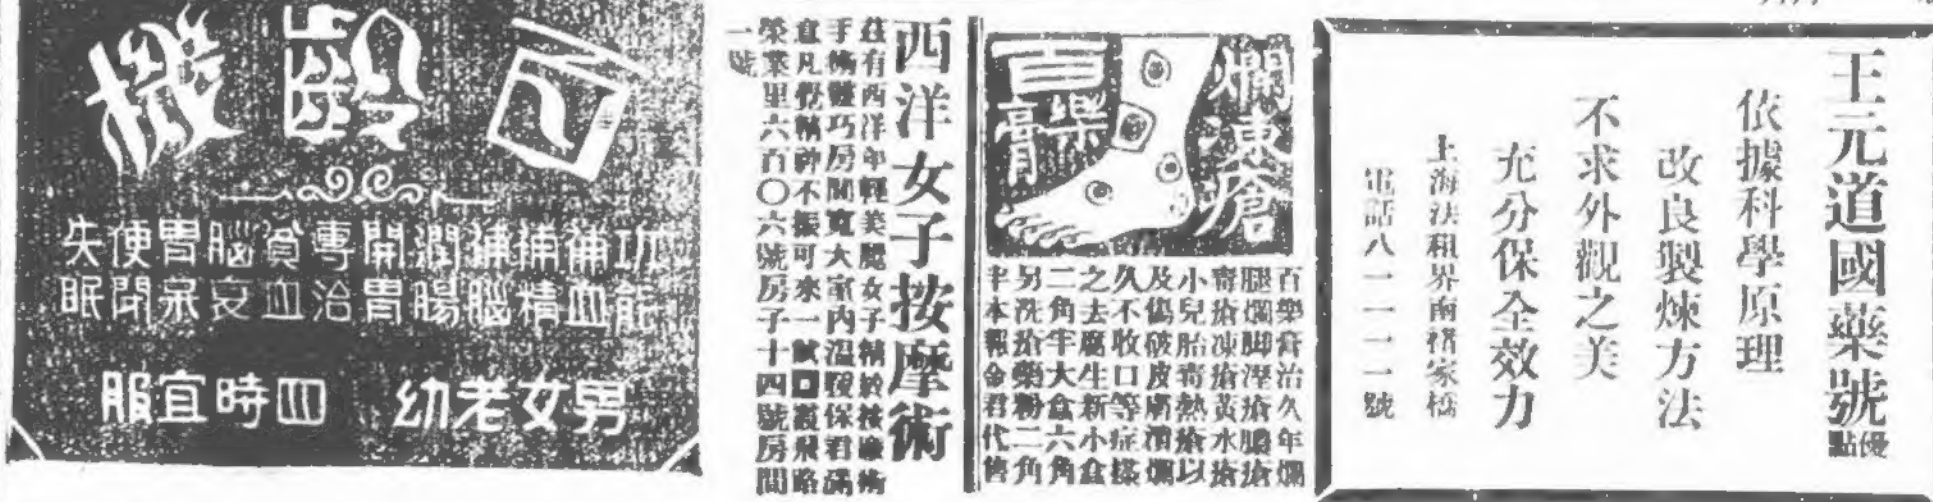 王元道國藥號 優點
依據科學原理
改良製煉方法
不求外觀之美
充分保全效力
上海法租界南褚家橋
電話八一一一一號
爛凍瘡
百樂膏
百樂膏治久年爛
腿爛脚溼瘡臁瘡
毒瘡凍瘡黃水瘡
小兒胎毒熱瘡以
及傷破皮膚潰爛
久不收口等症搽
之去腐生新小盒
二角半大盒六角
另洗瘡藥粉二角
半本報命君代售
西洋女子按摩術
茲有西洋年輕美麗女子精於按摩術
手術靈巧房間寬大室內溫暖保君滿
意凡覺精神不振可來一試□霞飛路
榮業里六百〇六號房子十四號房間
一號
功能 補血 補精 補腦 潤腸 開胃 專治 貧血 腦衰 胃呆 便閉 失眠
男女老幼 四時宜服